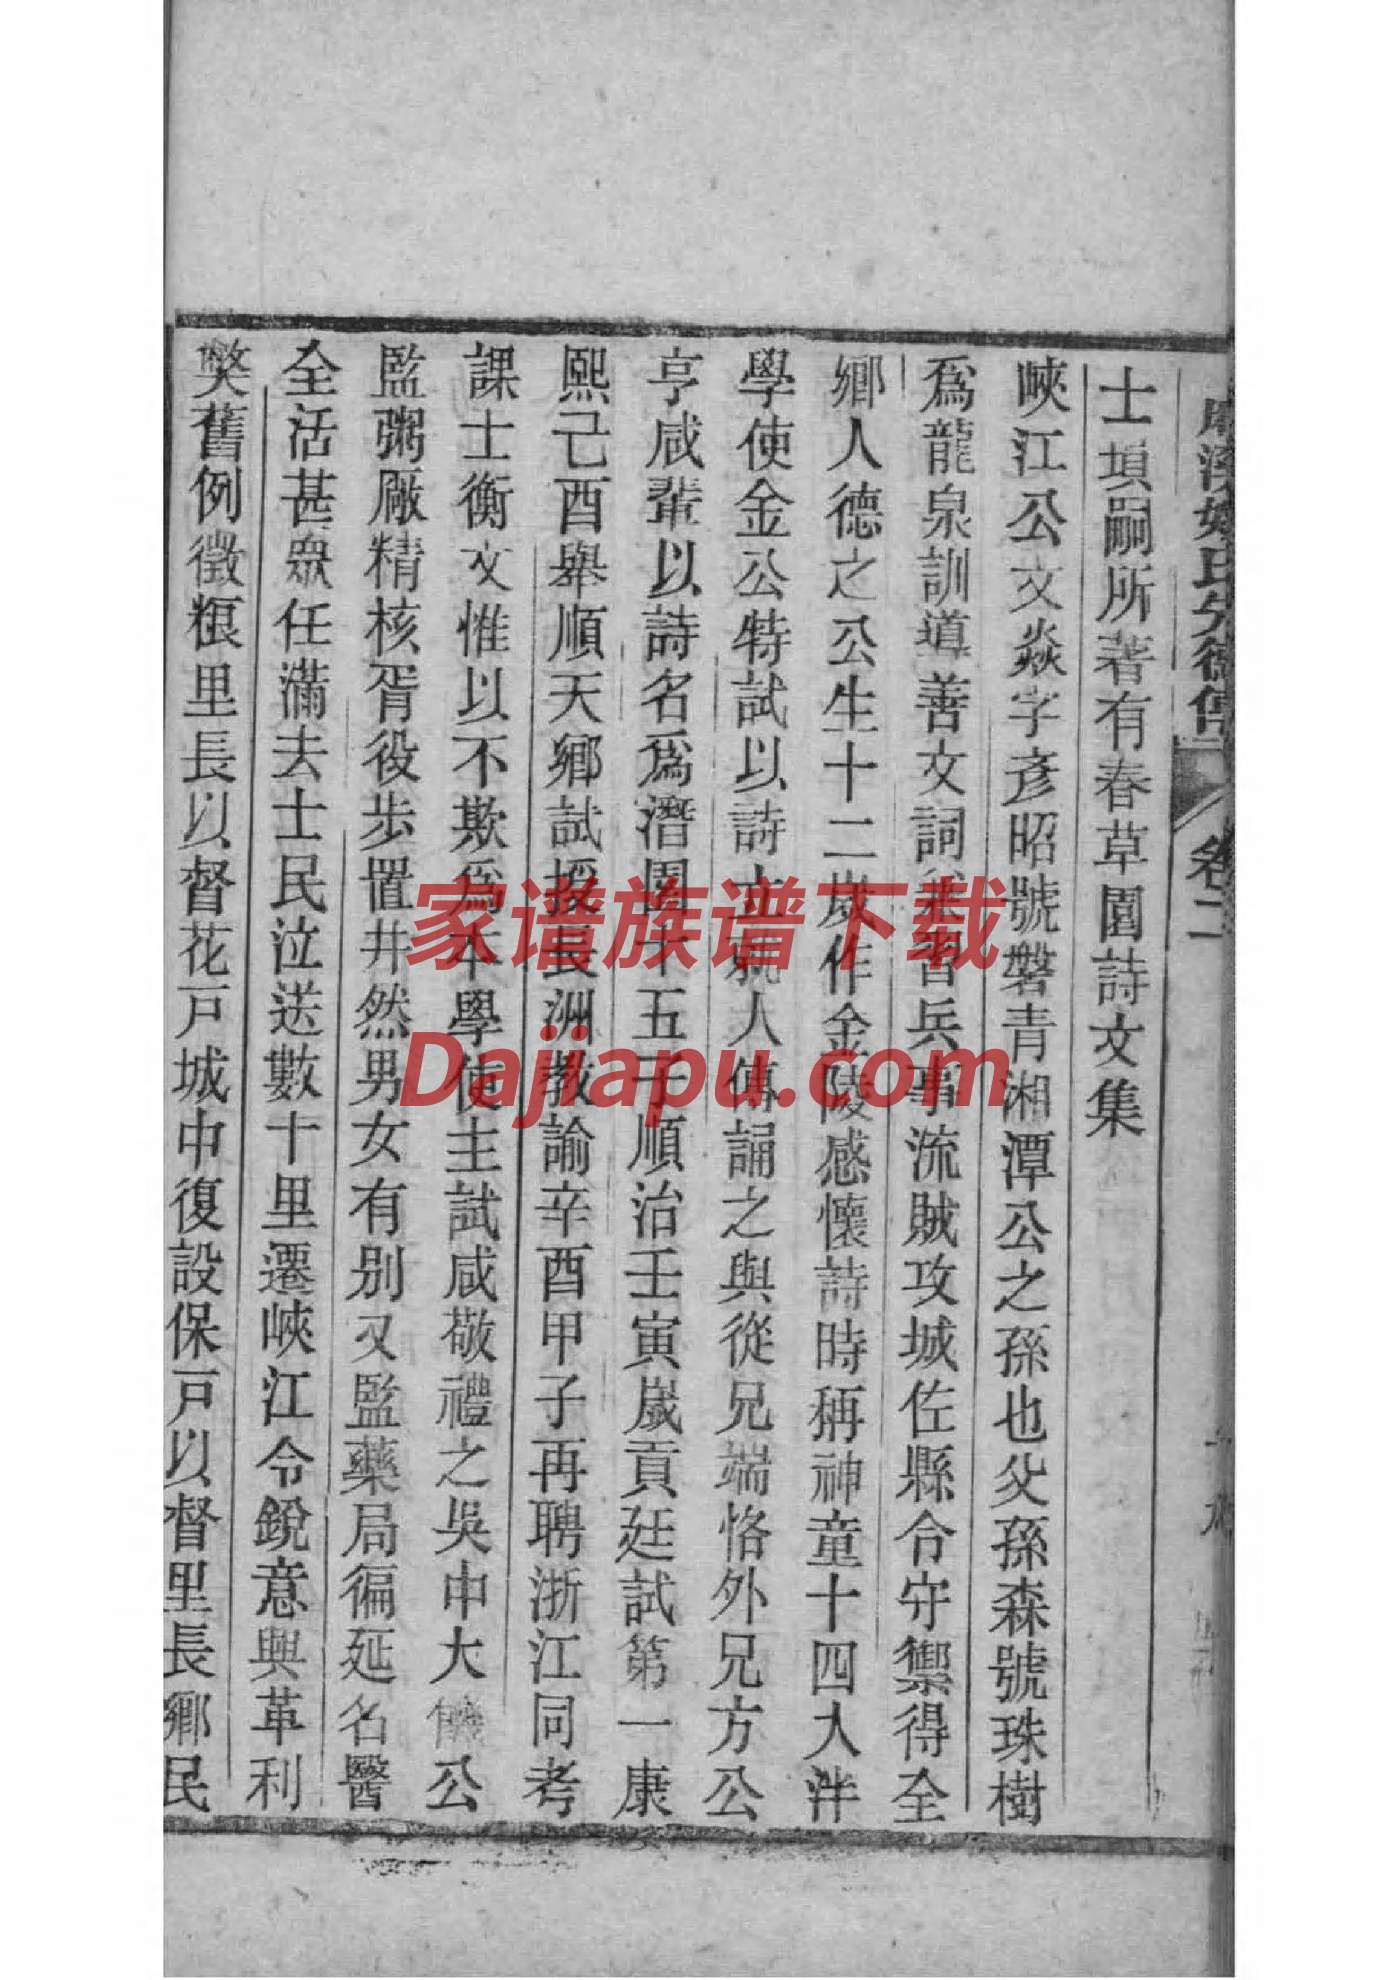 麻溪姚氏先德傳 卷二
士塤嗣所著有春草園詩文集
峽江公文焱字彥昭號磐青湘潭公之孫也父孫森號珠樹
為龍泉訓導善文詞兼習兵事流賊攻城佐縣令守禦得全
鄉人德之公生十二歲作金陵感懷詩時稱神童十四入泮
學使金公特試以詩立就人傳誦之與從兄端恪外兄方公
亨咸輩以詩名為潛園十五子順治壬寅歲貢廷試第一康
熙己酉舉順天鄉試授長洲教諭辛酉甲子再聘浙江同考
課士衡文惟以不欺為本學使主試咸敬禮之吳中大饑公
監粥廠精核胥役步置井然男女有别又監藥局徧延名醫
全活甚眾任滿去士民泣送數十里遷峽江令銳意興革利
獘舊例徵糧里長以督花戶城中復設保戶以督里長鄉民
家谱族谱下载
Dajiapu.com